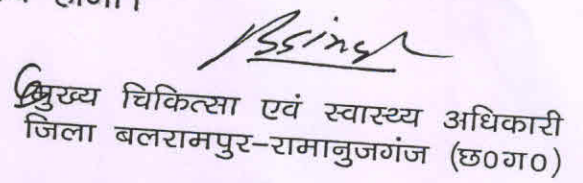 मुख्य चिकित्सा एवं स्वास्थ्य अधिकारी
जिला बलरामपुर-रामानुजगंज (छ०ग०)